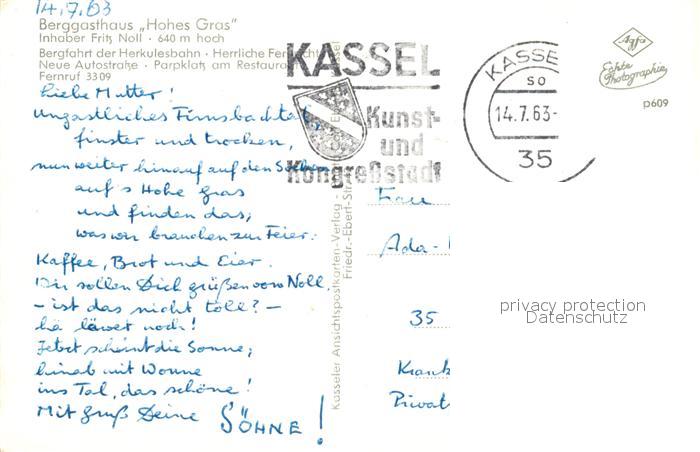 14.7.63
Berggasthaus „Hohes Gras"
Inhaber Fritz Noll · 640 m hoch
Bergfahrt der Herkulesbahn · Herrliche
Neue Autostraße · Parkplatz am Restaurant
Fernruf 3309
Liebe Mutter!
Ungastliches Firnsbachtal,
finster und trocken,
nun weiter hinauf auf den
auf's Hohe Gras
und finden das,
was wir brauchen zur Feier:
Kaffee, Brot und Eier.
Wir sollen Dich grüßen vom Noll,
– ist das nicht toll? –
hä läwet noch!
Jetzt scheint die Sonne,
hinab mit Wonne
ins Tal, das schöne!
Mit Gruß Deine SÖHNE!
Kasseler Ansichtspostkarten-Verlag -
Friedr.-Ebert-Str.
KASSEL
Kunst-
und
Kongreßstadt
KASSE
so
14.7.63-
35
Agfa
Echte
Photographie
p609
Frau
Ada-
35
Krank
Privat
privacy protection
Datenschutz